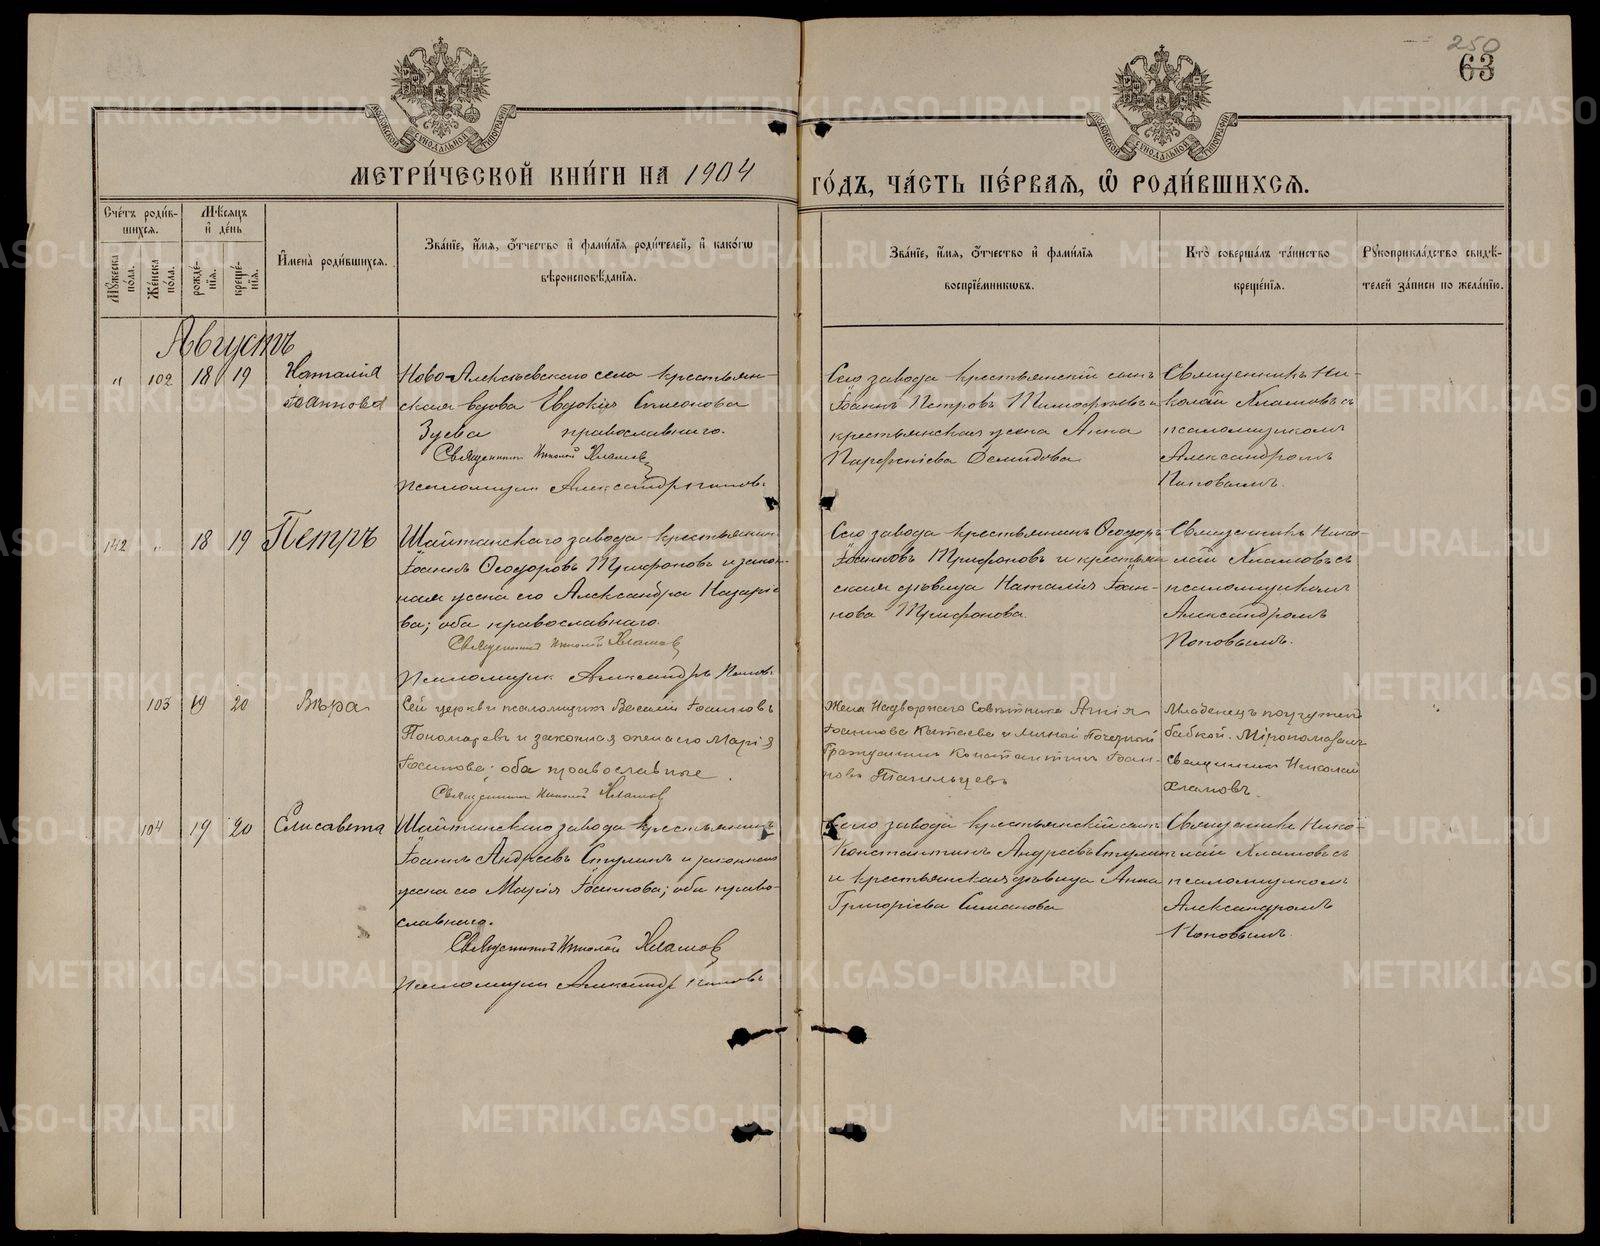 250
63
МОСКОВСКОЙ СѴНОДАЛЬНОЙ ТИПОГРАФІИ
МОСКОВСКОЙ СѴНОДАЛЬНОЙ ТИПОГРАФІИ
МЕТРИ́ЧЕСКОЙ КНИ́ГИ НА 1904
ГО́ДЪ, ЧА́СТЬ ПЕ́РВАЯ, Ѽ РОДИ́ВШИХСЯ.
Сче́тъ роди́в-
шихся.
Мѣ́сяцъ
и҆ де́нь
Мꙋ́жеска
по́ла.
Же́нска
по́ла.
рожде́-
нїѧ.
креще́-
нїѧ.
И҆мена̀ роди́вшихся.
Зва́нїе, и҆́мѧ, ѻ҆́тчество и҆ фами́лїѧ роди́телей, и҆ како́гѡ
вѣроисповѣ́данїѧ.
Зва́нїе, и҆́мѧ, ѻ҆́тчество и҆ фами́лїѧ
воспрїе́мникѡвъ.
Кто̀ соверша́лъ та́инство
креще́нїѧ.
Рꙋкоприкла́дство свидѣ́-
телей за́писи по жела́нїю.
Августъ
" 102 18 19 Наталія
Іоаннова
Ново-Алексѣевскаго села крестьян-
ская вдова Евдокія Симонова
Зуева православнаго.
Священникъ Николай Хламовъ
Псаломщик Александръ Поповъ.
Сего завода крестьянскій сынъ
Іоаннъ Петровъ Тимофѣевъ и
крестьянская жена Анна
Парфеніева Демидова
Священникъ Ни-
колай Хламовъ съ
псаломщикомъ
Александромъ
Поповымъ.
142 " 18 19 Петръ
Шайтанскаго завода крестьянинъ
Іоаннъ Ѳеодоровъ Трифоновъ и закон-
ная жена его Александра Назаріе
ва; оба православнаго.
Священникъ Николай Хламовъ
Псаломщик Александръ Поповъ.
Сего завода крестьянинъ Ѳеодоръ
Іоанновъ Трифоновъ и крестьян
ская дѣвица Наталія Іоан-
нова Трифонова.
Священникъ Нико-
лай Хламовъ съ
псаломщикомъ
Александромъ
Поповымъ.
103 19 20 Вѣра
Сей церкви псаломщикъ Василій Іоанновъ
Пономаревъ и законная жена его Марія
оба православные.
Священникъ Николай Хламовъ
Жена Надворнаго Совѣтника Агнія
Іоаннова Катаева и Личный Почетный
Гражданинъ Константинъ Іоан-
новъ Тагильцевъ
Младенецъ погруженъ
бабкой. Мѵропомазалъ
священникъ Николай
Хламовъ.
104 19 20 Елисавета
Шайтанскаго завода крестьянинъ
Іоаннъ Андреевъ Ступинъ и законная
жена его Марія Іоаннова; оба право-
славнаго.
Священникъ Николай Хламовъ
Псаломщик Александръ Поповъ
Сего завода крестьянскій сынъ
Константинъ Андреевъ Ступинъ
и крестьянская дѣвица Анна
Григоріева Симанова
Священникъ Нико-
лай Хламовъ съ
псаломщикомъ
Александромъ
Поповымъ.
METRIKI.GASO-URAL.RU